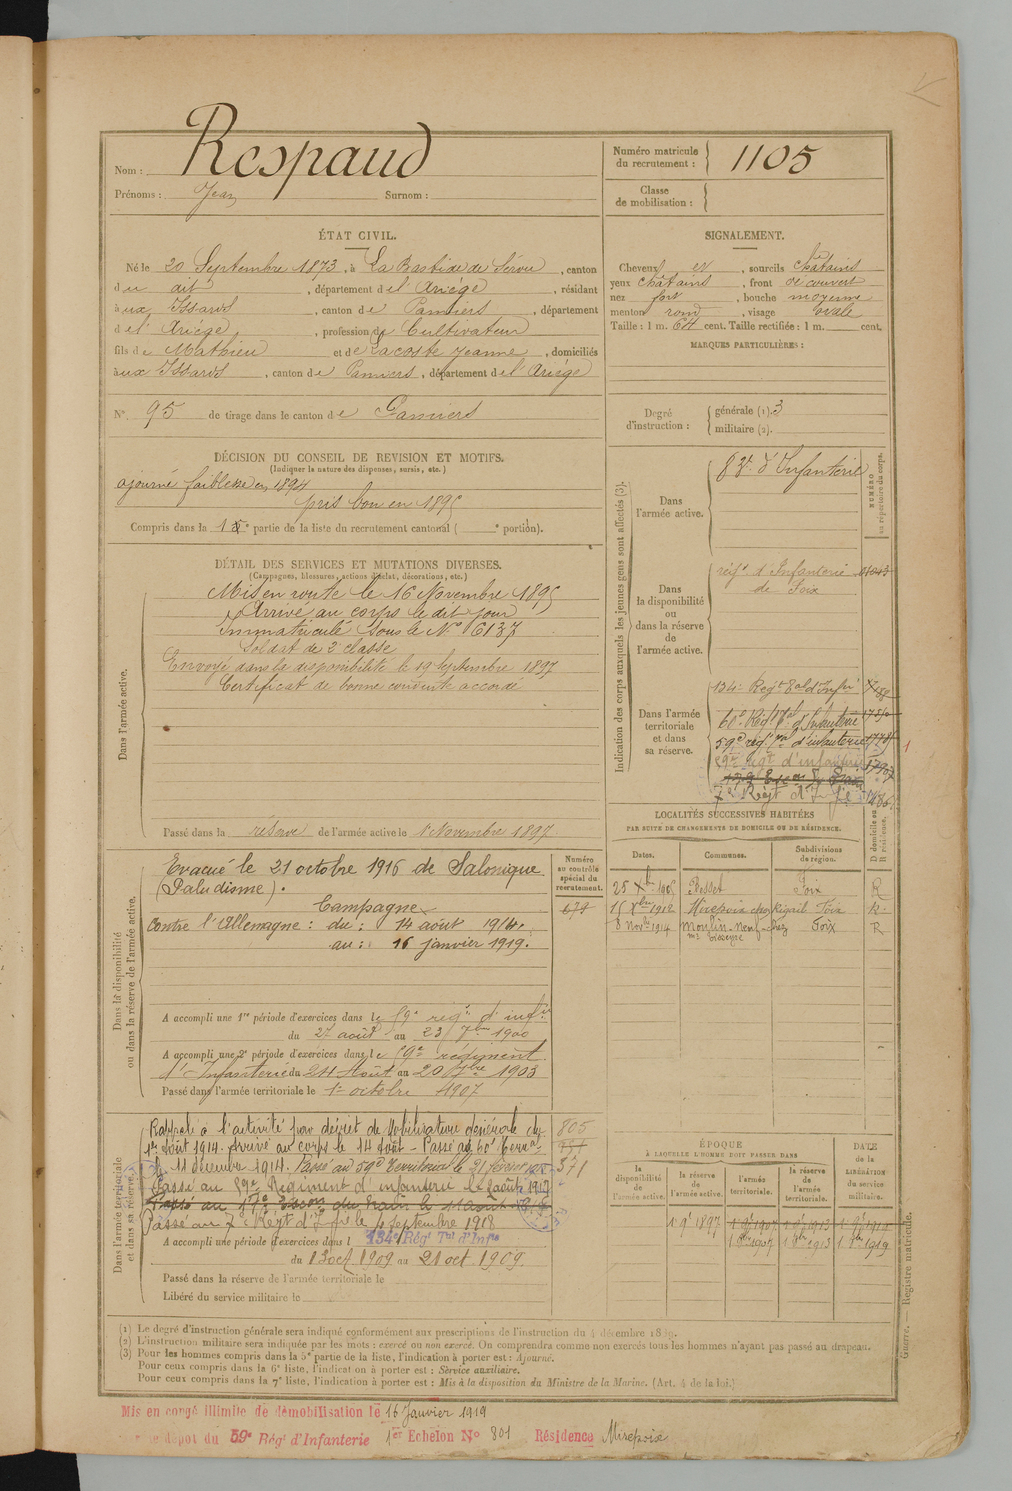 Nom : Respaud
Prénoms : Jean Surnom :
Numéro matricule du recrutement : 1105
Classe de mobilisation :
ÉTAT CIVIL.
Né le 20 Septembre 1873, à La Bastide de Sérou, canton
du dit, département de l'Ariége, résidant
à aux Issards, canton de Pamiers, département
de l'Ariége, profession de Cultivateur
fils de Mathieu et de Lacoste Jeanne, domiciliés
à aux Issards, canton de Pamiers, département de l'Ariége
N° 95 de tirage dans le canton de Pamiers
SIGNALEMENT.
Cheveux et, sourcils châtains
yeux châtains, front découvert
nez fort, bouche moyenne
menton rond, visage ovale
Taille : 1 m. 64 cent. Taille rectifiée : 1 m. cent.
MARQUES PARTICULIÈRES :
Degré d'instruction : générale (1). 3
militaire (2).
DÉCISION DU CONSEIL DE REVISION ET MOTIFS.
(Indiquer la nature des dispenses, sursis, etc.)
ajourné faiblesse en 1894
pris bon en 1895
Compris dans la 1e partie de la liste du recrutement cantonal ( e portion).
DÉTAIL DES SERVICES ET MUTATIONS DIVERSES.
(Campagnes, blessures, actions d'éclat, décorations, etc.)
Dans l'armée active.
Mis en route le 16 Novembre 1895
Arrivé au corps le dit jour
Immatriculé sous le N° 6137
Soldat de 2e classe
Envoyé dans la disponibilité le 19 Septembre 1897
Certificat de bonne conduite accordé
Passé dans la réserve de l'armée active le 1 Novembre 1897
Dans la disponibilité ou dans la réserve de l'armée active.
Evacué le 21 octobre 1916 de Salonique
(Paludisme).
Campagne
Contre l'Allemagne : du : 14 août 1914.
au : 16 janvier 1919.
Numéro au contrôle spécial du recrutement.
679
A accompli une 1re période d'exercices dans le 59e rég.t d'inf.ie
du 27 août au 23 7bre 1900
A accompli une 2e période d'exercices dans le 59e régiment
d'Infanterie du 24 Août au 20 7bre 1903
Passé dans l'armée territoriale le 1er octobre 1907
Dans l'armée territoriale et dans sa réserve.
Rappelé à l'activité par décret de Mobilisation Générale du
1er Août 1914. Arrivé au corps le 14 Août - Passé au 60e Terr.al
le 11 décembre 1914. Passé au 59e Territorial le 21 février
Passé au 59e Régiment d'infanterie le août 1917
Passé au 17e Escon du train le 11 août
Passé au 7e Régt d'Ife le 4 Septembre 1918
805
371
A accompli une période d'exercices dans l 134e Régt Tal d'Infie
du 13 oct 1909 au 21 oct 1909.
Passé dans la réserve de l'armée territoriale le
Libéré du service militaire le
Indication des corps auxquels les jeunes gens sont affectés (3).
NUMÉRO au répertoire du corps.
Dans l'armée active.
83e d'Infanterie
Dans la disponibilité ou dans la réserve de l'armée active.
régt d'Infanterie
de Foix
Dans l'armée territoriale et dans sa réserve.
134e Régt Tal d'Infie
60e Régt Tal d'Infanterie
59e régt Tal d'infanterie
59e Régt d'infanterie
7e Régt d'Infie
LOCALITÉS SUCCESSIVES HABITÉES
PAR SUITE DE CHANGEMENTS DE DOMICILE OU DE RÉSIDENCE.
Dates. Communes. Subdivisions de région. D domicile ou R résidence.
25 Xbre 1906 Besset Foix R
15 Xbre 1912 Mirepoix chez Rigail Foix R.
8 Novbre 1914 Moulin-Neuf chez Foix R
ÉPOQUE
À LAQUELLE L'HOMME DOIT PASSER DANS
la disponibilité de l'armée active. la réserve de l'armée active. l'armée territoriale. la réserve de l'armée territoriale.
DATE de la LIBÉRATION du service militaire.
1 9bre 1897 1 9bre 1907 1 9bre 1913 1 9bre 1919
1 8bre 1907 1 8bre 1913 1 8bre 1919
Guerre. — Registre matricule.
(1) Le degré d'instruction générale sera indiqué conformément aux prescriptions de l'instruction du 4 décembre 1889.
(2) L'instruction militaire sera indiquée par les mots : exercé ou non exercé. On comprendra comme non exercés tous les hommes n'ayant pas passé au drapeau.
(3) Pour les hommes compris dans la 5e partie de la liste, l'indication à porter est : Ajourné.
Pour ceux compris dans la 6e liste, l'indication à porter est : Service auxiliaire.
Pour ceux compris dans la 7e liste, l'indication à porter est : Mis à la disposition du Ministre de la Marine. (Art. 4 de la loi.)
Mis en congé illimité de démobilisation le 16 Janvier 1919
dépôt du 59e Régt d'Infanterie 1er Echelon N° 801 Résidence Mirepoix